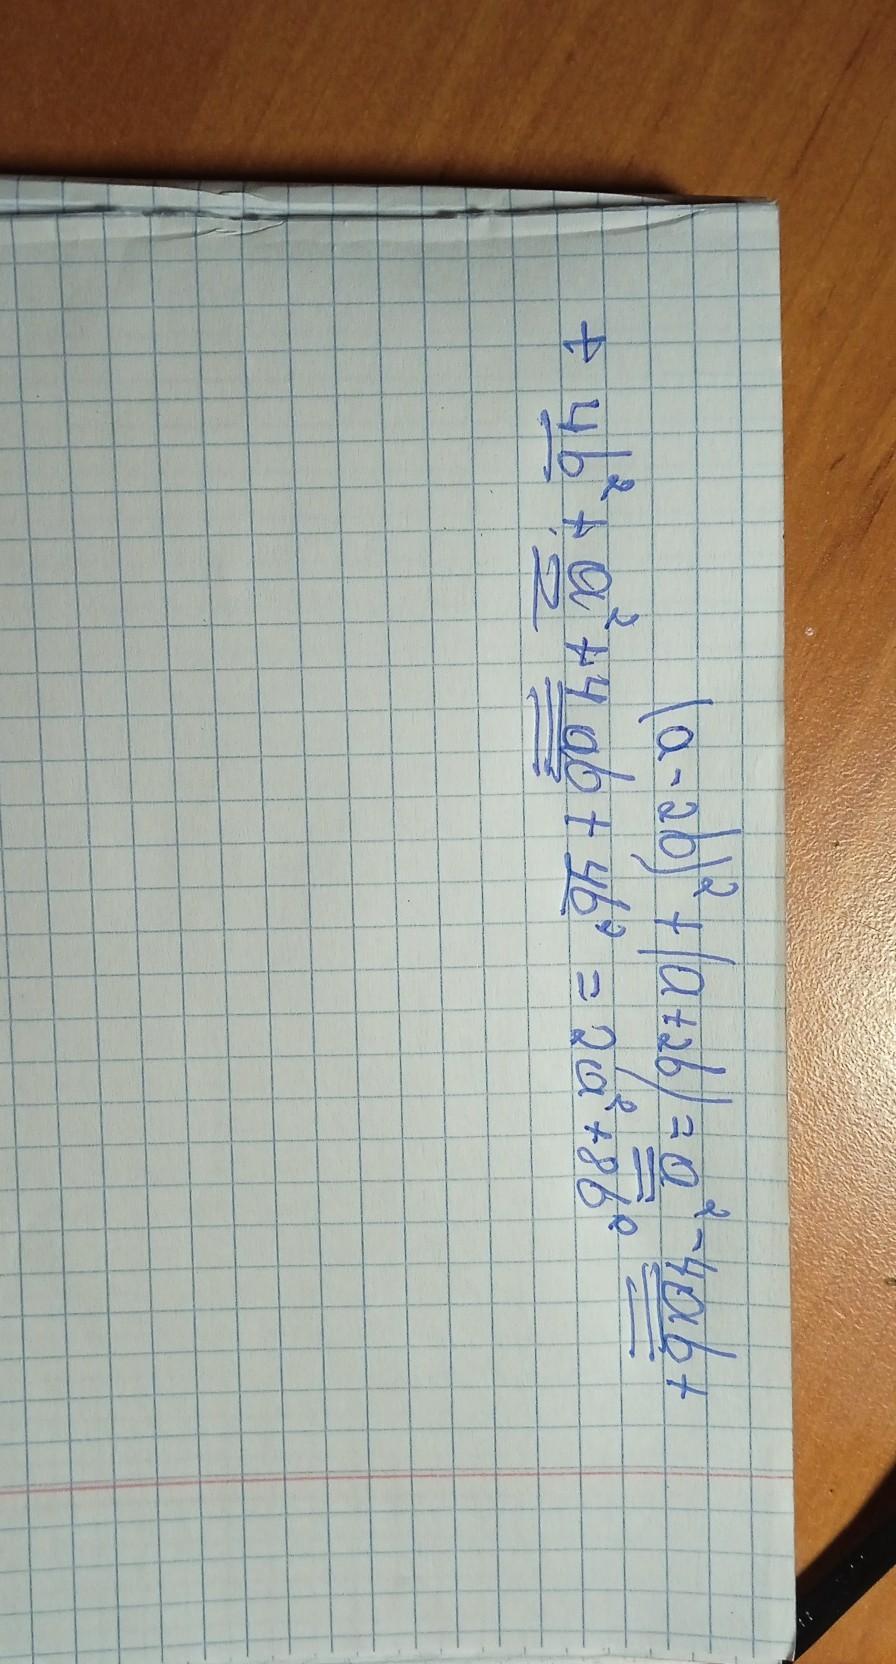 (a-2b)² + (a+2b) = a² - 4ab +
+ 4b² + a² + 4ab + 4b² = 2a² + 8b²